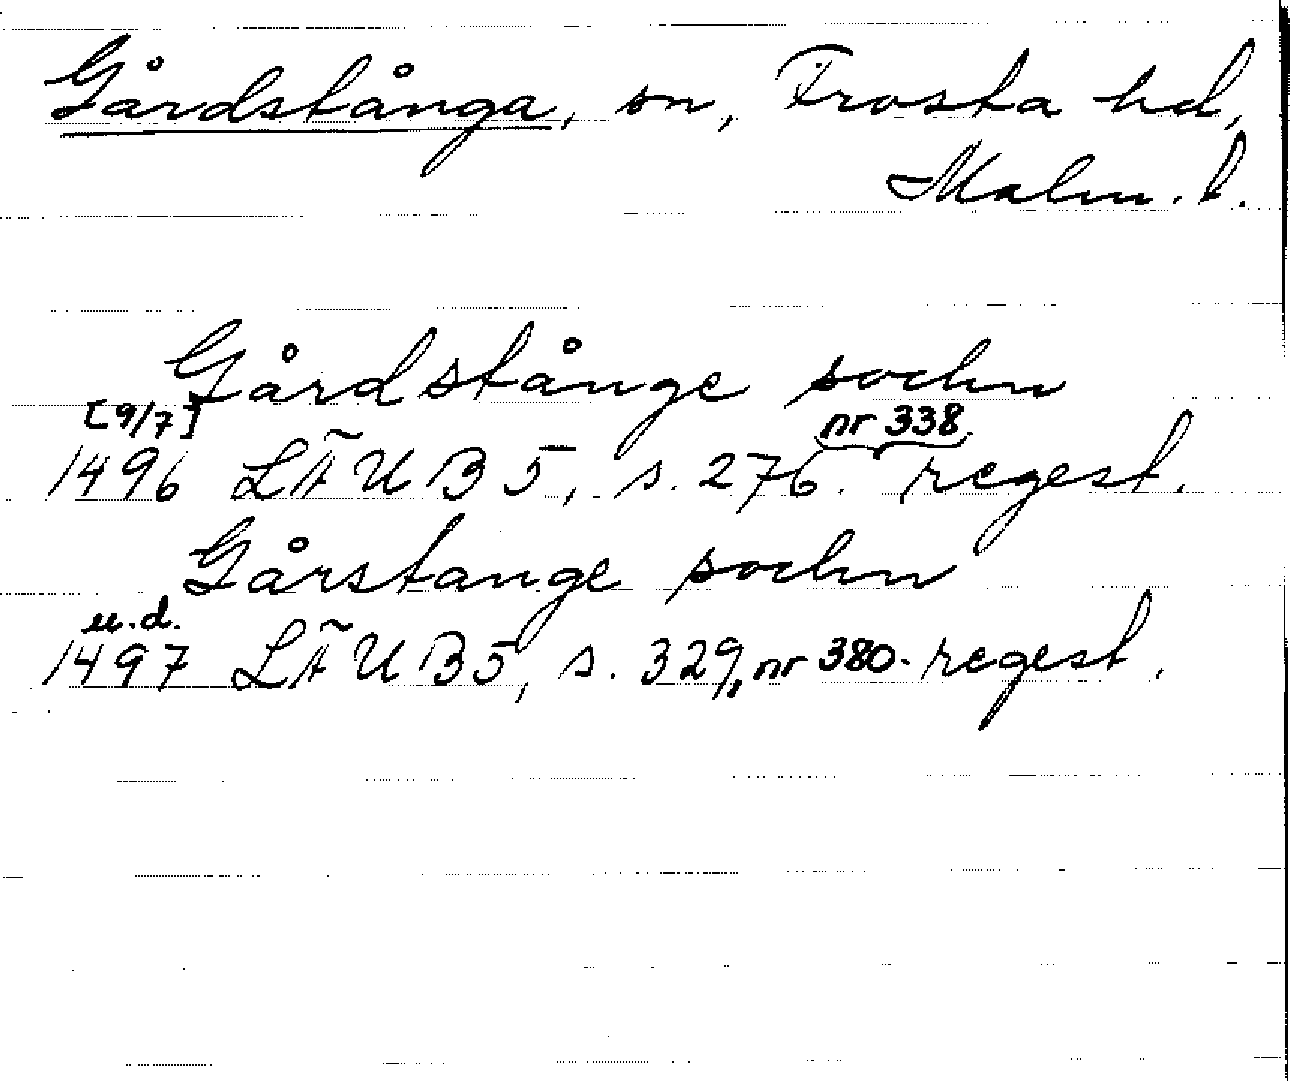 Gårdstånga, sn, Frosta hd,
Malm. l.
Gårdstånge sochn
[9/7] nr 338.
1496 LÄUB 5, s. 276. regest.
Gårstange sochn
u.d.
1497 LÄUB 5, s. 329, nr 380. regest.